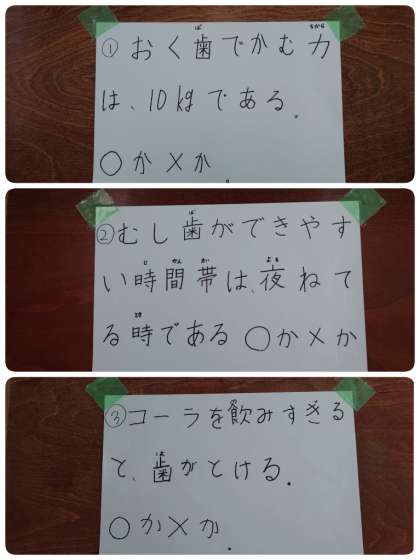 ①おく歯でかむ力
は、10kgである。
○か×か。
②むし歯ができやす
い時間帯は、夜ねて
る時である ○か×か
③コーラを飲みすぎる
と、歯がとける。
○か×か。